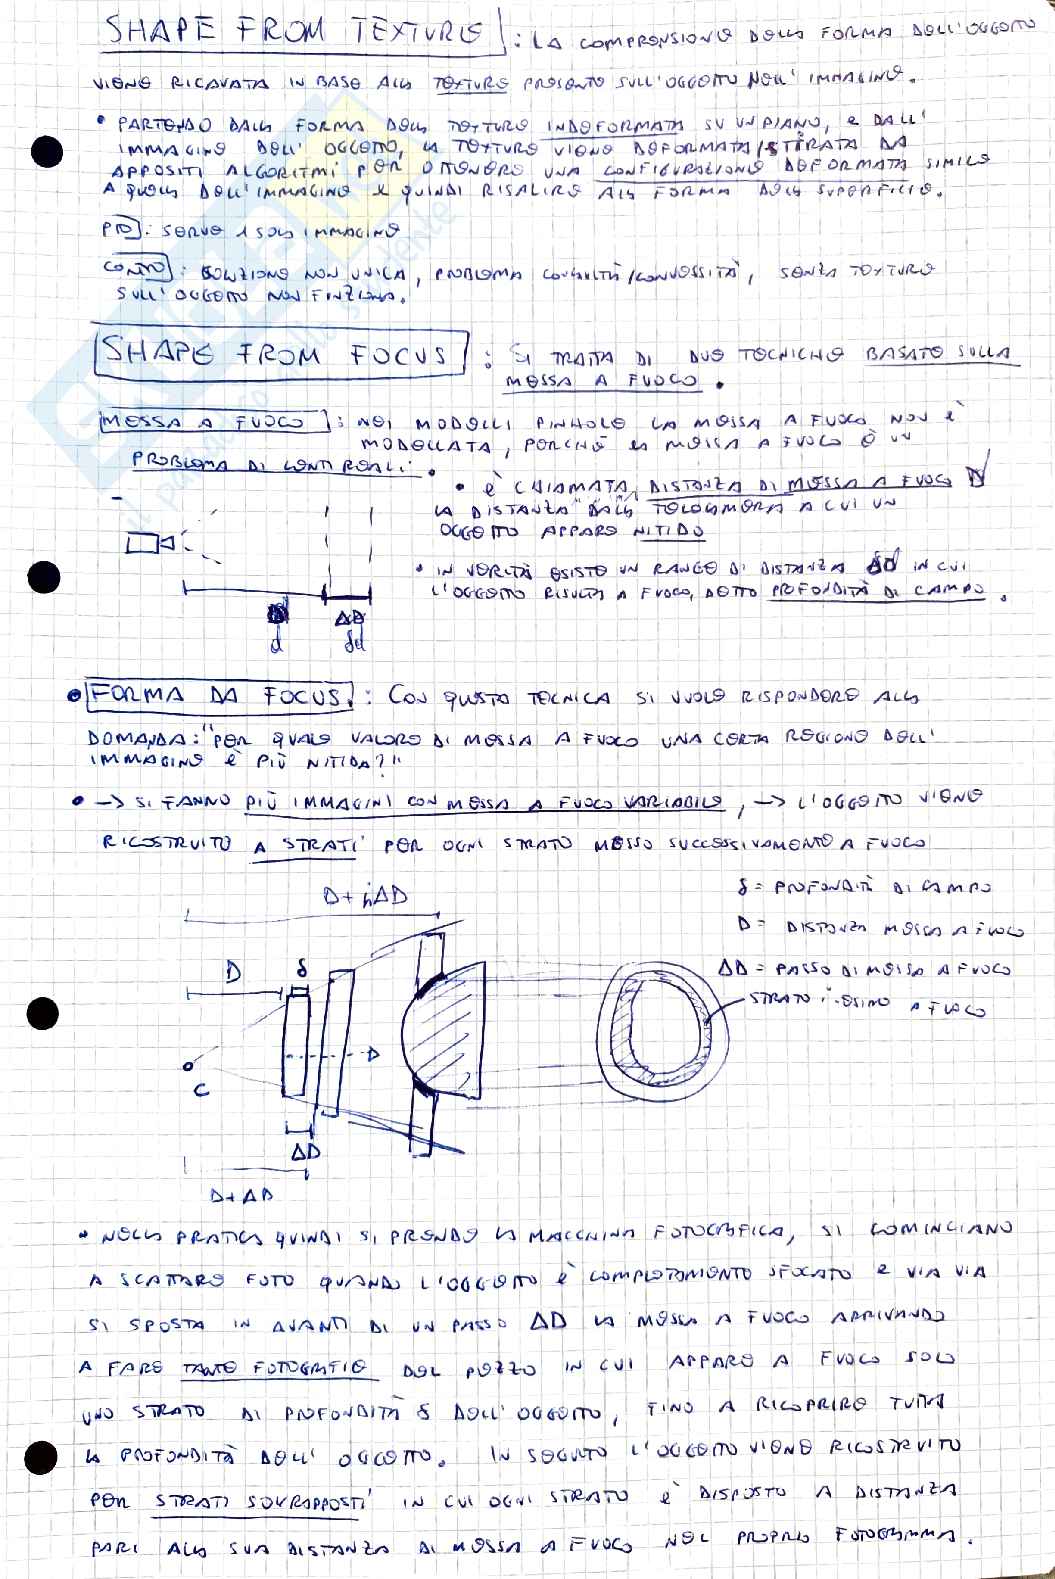 SHAPE FROM TEXTURE : LA COMPRENSIONE DELLA FORMA DELL'OGGETTO
VIENE RICAVATA IN BASE ALLA TEXTURE PRESENTE SULL'OGGETTO NELL'IMMAGINE.
• PARTENDO DALLA FORMA DELLA TEXTURE INDEFORMATA SU UN PIANO, E DALL'
IMMAGINE DELL'OGGETTO, LA TEXTURE VIENE DEFORMATA/STIRATA DA
APPOSITI ALGORITMI PER OTTENERE UNA CONFIGURAZIONE DEFORMATA SIMILE
A QUELLA DELL'IMMAGINE E QUINDI RISALIRE ALLA FORMA DELLA SUPERFICIE.
PRO : SERVE 1 SOLA IMMAGINE
CONTRO : SOLUZIONE NON UNICA, PROBLEMA CONCAVITÀ/CONVESSITÀ, SENZA TEXTURE
SULL'OGGETTO NON FUNZIONA.
SHAPE FROM FOCUS : SI TRATTA DI DUE TECNICHE BASATE SULLA
MESSA A FUOCO.
MESSA A FUOCO : NEI MODELLI PINHOLE LA MESSA A FUOCO NON È
MODELLATA, PERCHÉ LA MESSA A FUOCO È UN
PROBLEMA DI LENTI REALI.
• È CHIAMATA "DISTANZA DI MESSA A FUOCO D"
LA DISTANZA DALLA TELECAMERA A CUI UN
OGGETTO APPARE NITIDO
• IN VERITÀ ESISTE UN RANGE DI DISTANZA δd IN CUI
L'OGGETTO RISULTA A FUOCO, DETTO PROFONDITÀ DI CAMPO.
d
ΔD
δd
• FORMA DA FOCUS : CON QUESTA TECNICA SI VUOLE RISPONDERE ALLA
DOMANDA: "PER QUALE VALORE DI MESSA A FUOCO UNA CERTA REGIONE DELL'
IMMAGINE È PIÙ NITIDA?"
• → SI FANNO PIÙ IMMAGINI CON MESSA A FUOCO VARIABILE, → L'OGGETTO VIENE
RICOSTRUITO A STRATI PER OGNI STRATO MESSO SUCCESSIVAMENTE A FUOCO
D + iΔD
δ = PROFONDITÀ DI CAMPO
D = DISTANZA MESSA A FUOCO
D
δ
ΔD = PASSO DI MESSA A FUOCO
STRATO i-ESIMO A FUOCO
C
ΔD
D + ΔD
• NELLA PRATICA QUINDI SI PRENDE LA MACCHINA FOTOGRAFICA, SI COMINCIANO
A SCATTARE FOTO QUANDO L'OGGETTO È COMPLETAMENTE SFOCATO E VIA VIA
SI SPOSTA IN AVANTI DI UN PASSO ΔD LA MESSA A FUOCO ARRIVANDO
A FARE TANTE FOTOGRAFIE DEL PEZZO IN CUI APPARE A FUOCO SOLO
UNO STRATO DI PROFONDITÀ δ DELL'OGGETTO, FINO A RICOPRIRE TUTTA
LA PROFONDITÀ DELL'OGGETTO. IN SEGUITO L'OGGETTO VIENE RICOSTRUITO
PER STRATI SOVRAPPOSTI IN CUI OGNI STRATO È DISPOSTO A DISTANZA
PARI ALLA SUA DISTANZA DI MESSA A FUOCO NEL PROPRIO FOTOGRAMMA.